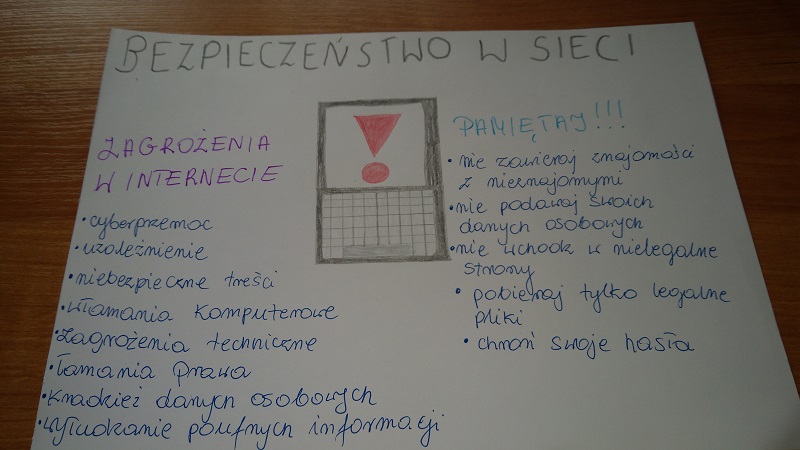 BEZPIECZEŃSTWO W SIECI
ZAGROŻENIA
W INTERNECIE
• cyberprzemoc
• uzależnienie
• niebezpieczne treści
• włamania komputerowe
• zagrożenia techniczne
• łamania prawa
• kradzież danych osobowych
• wyłudzanie poufnych informacji
PAMIĘTAJ!!!
• nie zawieraj znajomości
z nieznajomymi
• nie podawaj swoich
danych osobowych
• nie wchodź w nielegalne
strony
• pobieraj tylko legalne
pliki
• chroń swoje hasła